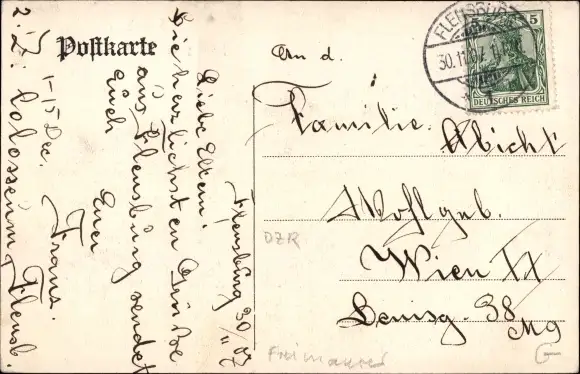 Postkarte
Flensburg 30/11 07
Liebe Eltern!
Die herzlichsten Grüße
aus Flensburg sendet
Euch
Euer
Franz.
1-15 Dec.
z. Z. Colosseum Flensb.
An d.
Familie Abicht
Wohlgeb.
Wien XX
Denisg. 38
M 9
DZR
FLENSBURG
30.11.07
5
DEUTSCHES REICH